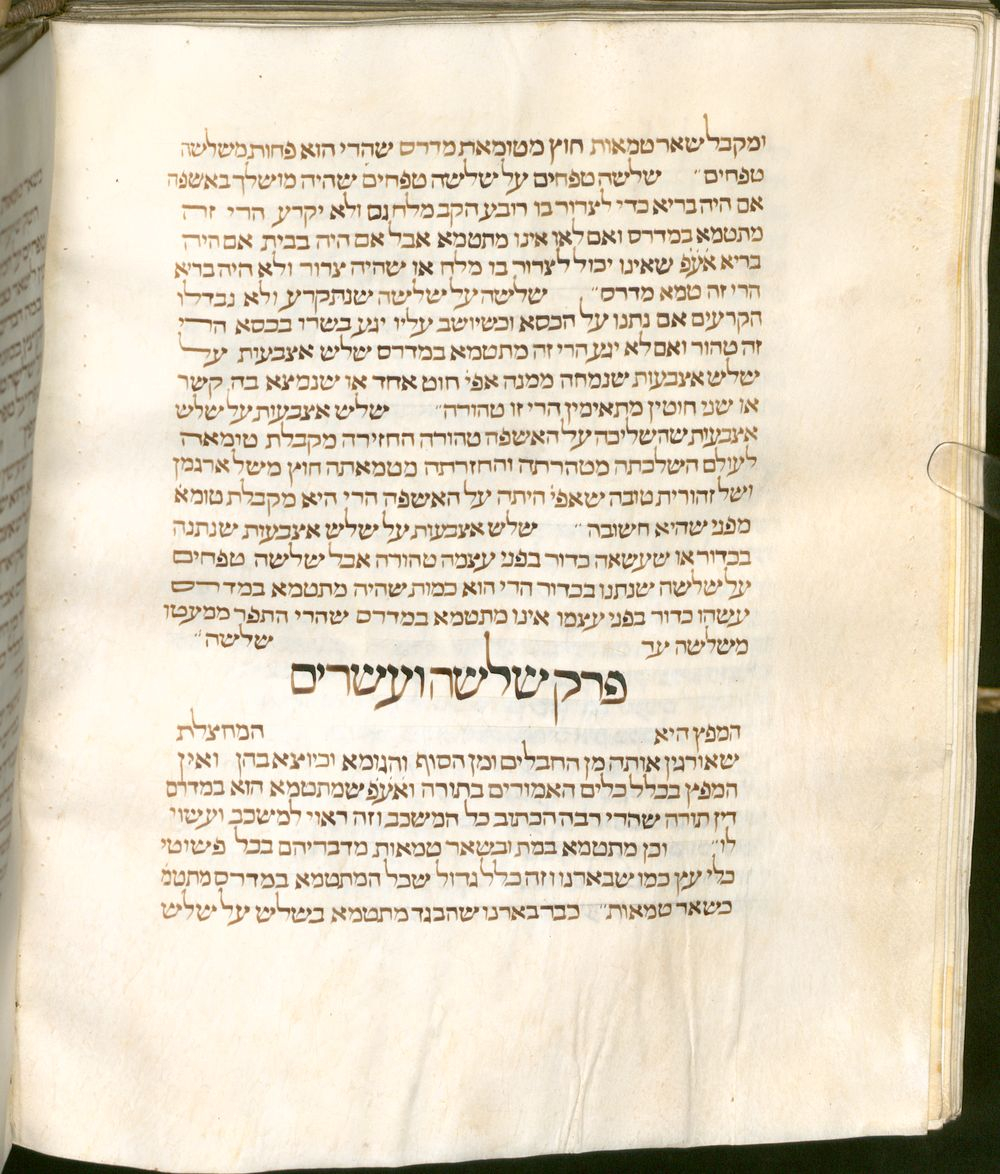 ומקבל שאר טמאות חוץ מטומאת מדרס שהרי הוא פחות משלשה
טפחים״ שלשה טפחים על שלשה טפחים שהיה מושלך באשפה
אם היה בריא כדי לצרור בו רובע הקב מלח גס ולא יקרע הרי זה
מתטמא במדרס ואם לאו אינו מתטמא אבל אם היה בבית אם היה
בריא אעפ שאינו יכול לצרור בו מלח או שהיה צרור ולא היה בריא
הרי זה טמא מדרס״ שלשה על שלשה שנתקרע ולא נבדלו
הקרעים אם נתנו על הכסא וכשיושב עליו יגע בשרו בכסא הרי
זה טהור ואם לא יגע הרי זה מתטמא במדרס שלש אצבעות על
שלש אצבעות שנמחה ממנה אפי׳ חוט אחד או שנמצא בה קשר
או שני חוטין מתאימין הרי זו טהורה״ שלש אצבעות על שלש
אצבעות שהשליכה על האשפה טהורה החזירה מקבלת טומאה
לעולם השלכתה מטהרתה והחזרתה מטמאתה חוץ משל ארגמן
ושל זהורית טובה שאפי׳ היתה על האשפה הרי היא מקבלת טומא
מפני שהיא חשובה״ שלש אצבעות על שלש אצבעות שנתנה
בכדור או שעשאה כדור בפני עצמה טהורה אבל שלשה טפחים
על שלשה שנתנו בכדור הרי הוא כמות שהיה מתטמא במדרס
עשהו כדור בפני עצמו אינו מתטמא במדרס שהרי התפר ממעטו
משלשה על שלשה״
פרק שלשה ועשרים
המפץ היא המחצלת
שאורגין אותה מן החבלים ומן הסוף והגומא וכיוצא בהן ואין
המפץ בכלל כלים האמורים בתורה ואעפ שמתטמא הוא במדרס
דין תורה שהרי רבה הכתוב כל המשכב וזה ראוי למשכב ועשוי
לו״ וכן מתטמא במת ובשאר טמאות מדבריהם בכל פשוטי
כלי עץ כמו שבארנו וזה כלל גדול שכל המתטמא במדרס מתטמ
בשאר טמאות״ כבר בארנו שהבגד מתטמא בשלש על שלש